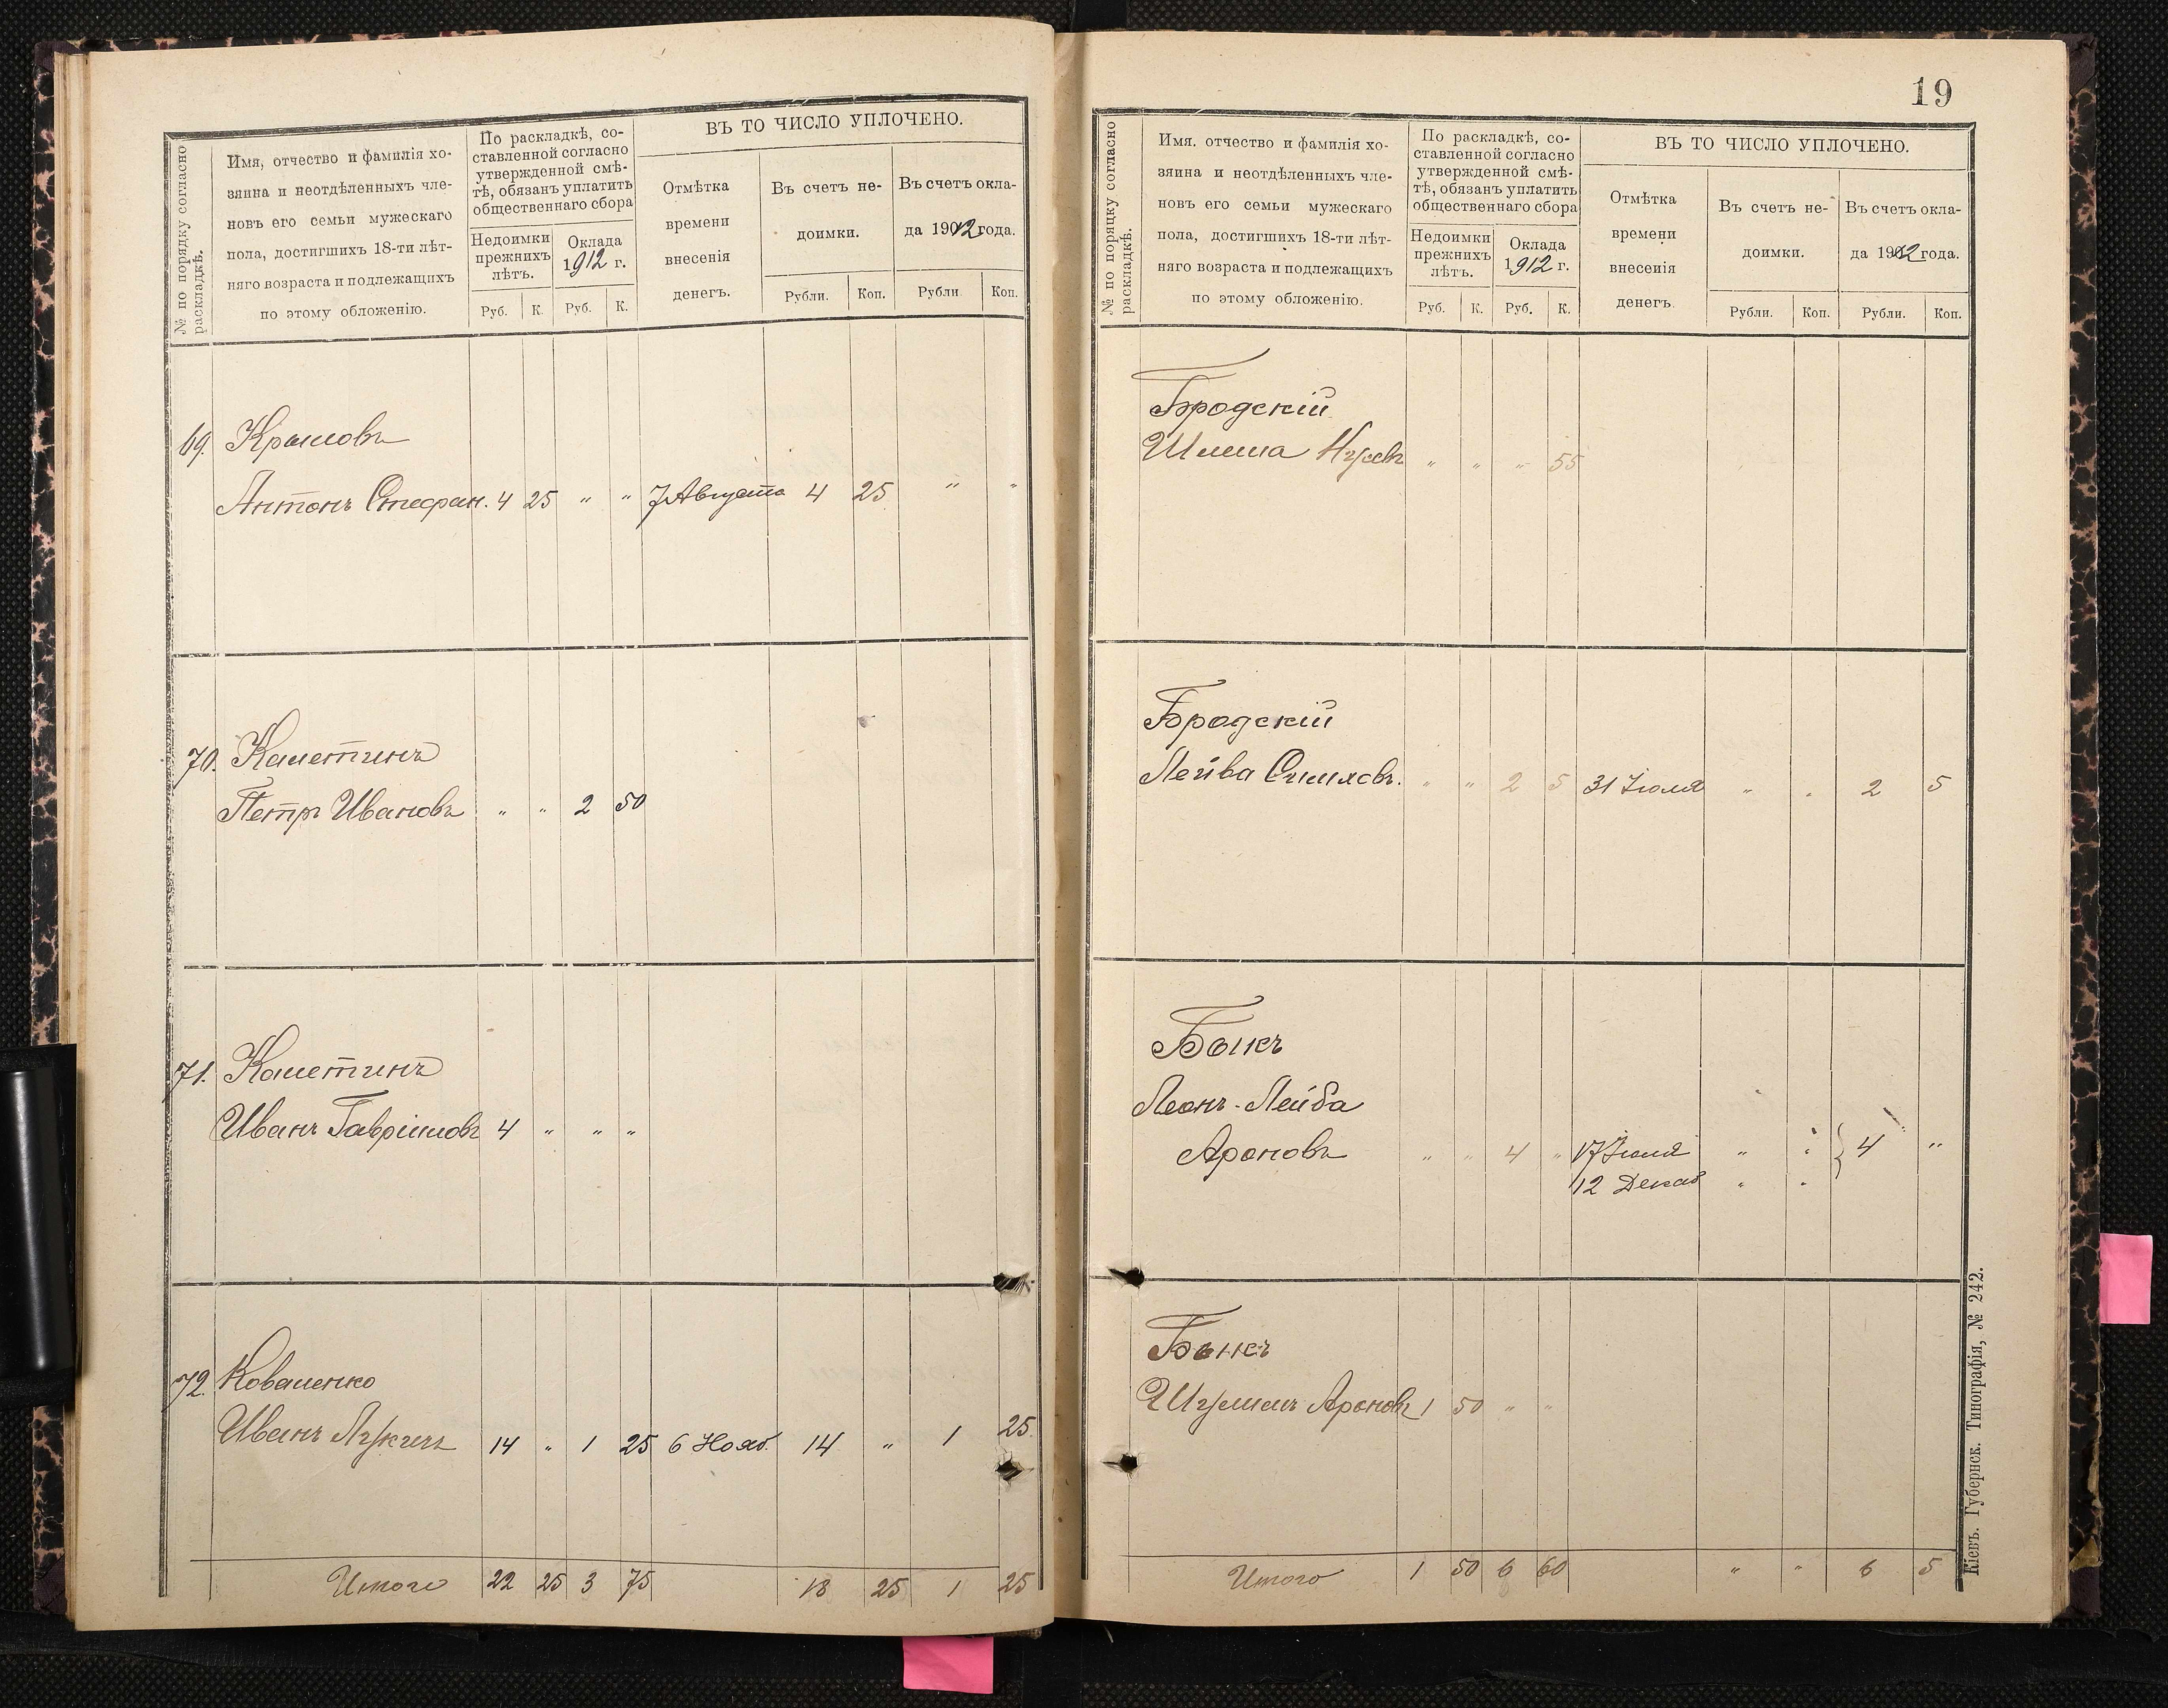 № по порядку согласно
раскладкѣ.
Имя, отчество и фамилія хо-
зяина и неотдѣленныхъ чле-
новъ его семьи мужескаго
пола, достигшихъ 18-ти лѣт-
няго возраста и подлежащихъ
по этому обложенію.
По раскладкѣ, со-
ставленной согласно
утвержденной смѣ-
тѣ, обязанъ уплатить
общественнаго сбора
Недоимки
прежнихъ
лѣтъ.
Оклада
1912 г.
Руб. К. Руб. К.
ВЪ ТО ЧИСЛО УПЛОЧЕНО.
Отмѣтка
времени
внесенія
денегъ.
Въ счетъ не-
доимки.
Рубли. Коп.
Въ счетъ окла-
да 1912 года.
Рубли Коп.
69. Крамовъ
Антонъ Стефан. 4 25 „ „ 7 Августа 4 25 „ „
70. Калетинъ
Петръ Ивановъ „ „ 2 50
71. Калетинъ
Иванъ Гавріиловъ 4 „ „ „
72. Коваленко
Иванъ 14 „ 1 25 6 Нояб. 14 „ 1 25
Итого 22 25 3 75 18 25 1 25
19
№ по порядку согласно
раскладкѣ.
Имя. отчество и фамилія хо-
зяина и неотдѣленныхъ чле-
новъ его семьи мужескаго
пола, достигшихъ 18-ти лѣт-
няго возраста и подлежащихъ
по этому обложенію.
По раскладкѣ, со-
ставленной согласно
утвержденной смѣ-
тѣ, обязанъ уплатить
общественнаго сбора
Недоимки
прежнихъ
лѣтъ.
Оклада
1912 г.
Руб. К. Руб. К.
ВЪ ТО ЧИСЛО УПЛОЧЕНО.
Отмѣтка
времени
внесенія
денегъ.
Въ счетъ не-
доимки.
Рубли. Коп.
Въ счетъ окла-
да 1912 года.
Рубли. Коп.
Бродскій
„ „ „ 55
Бродскій
Лейба „ „ 2 5 31 Іюля „ „ 2 5
Быкъ
Леонъ-Лейба
Ароновъ „ „ 4 „ 17 Іюля „ „ 4 „
12 Декаб „ „
Быкъ
Ароновъ 1 50 „ „
Итого 1 50 6 60 „ „ 6 5
Кіевъ. Губернск. Типографія, № 242.